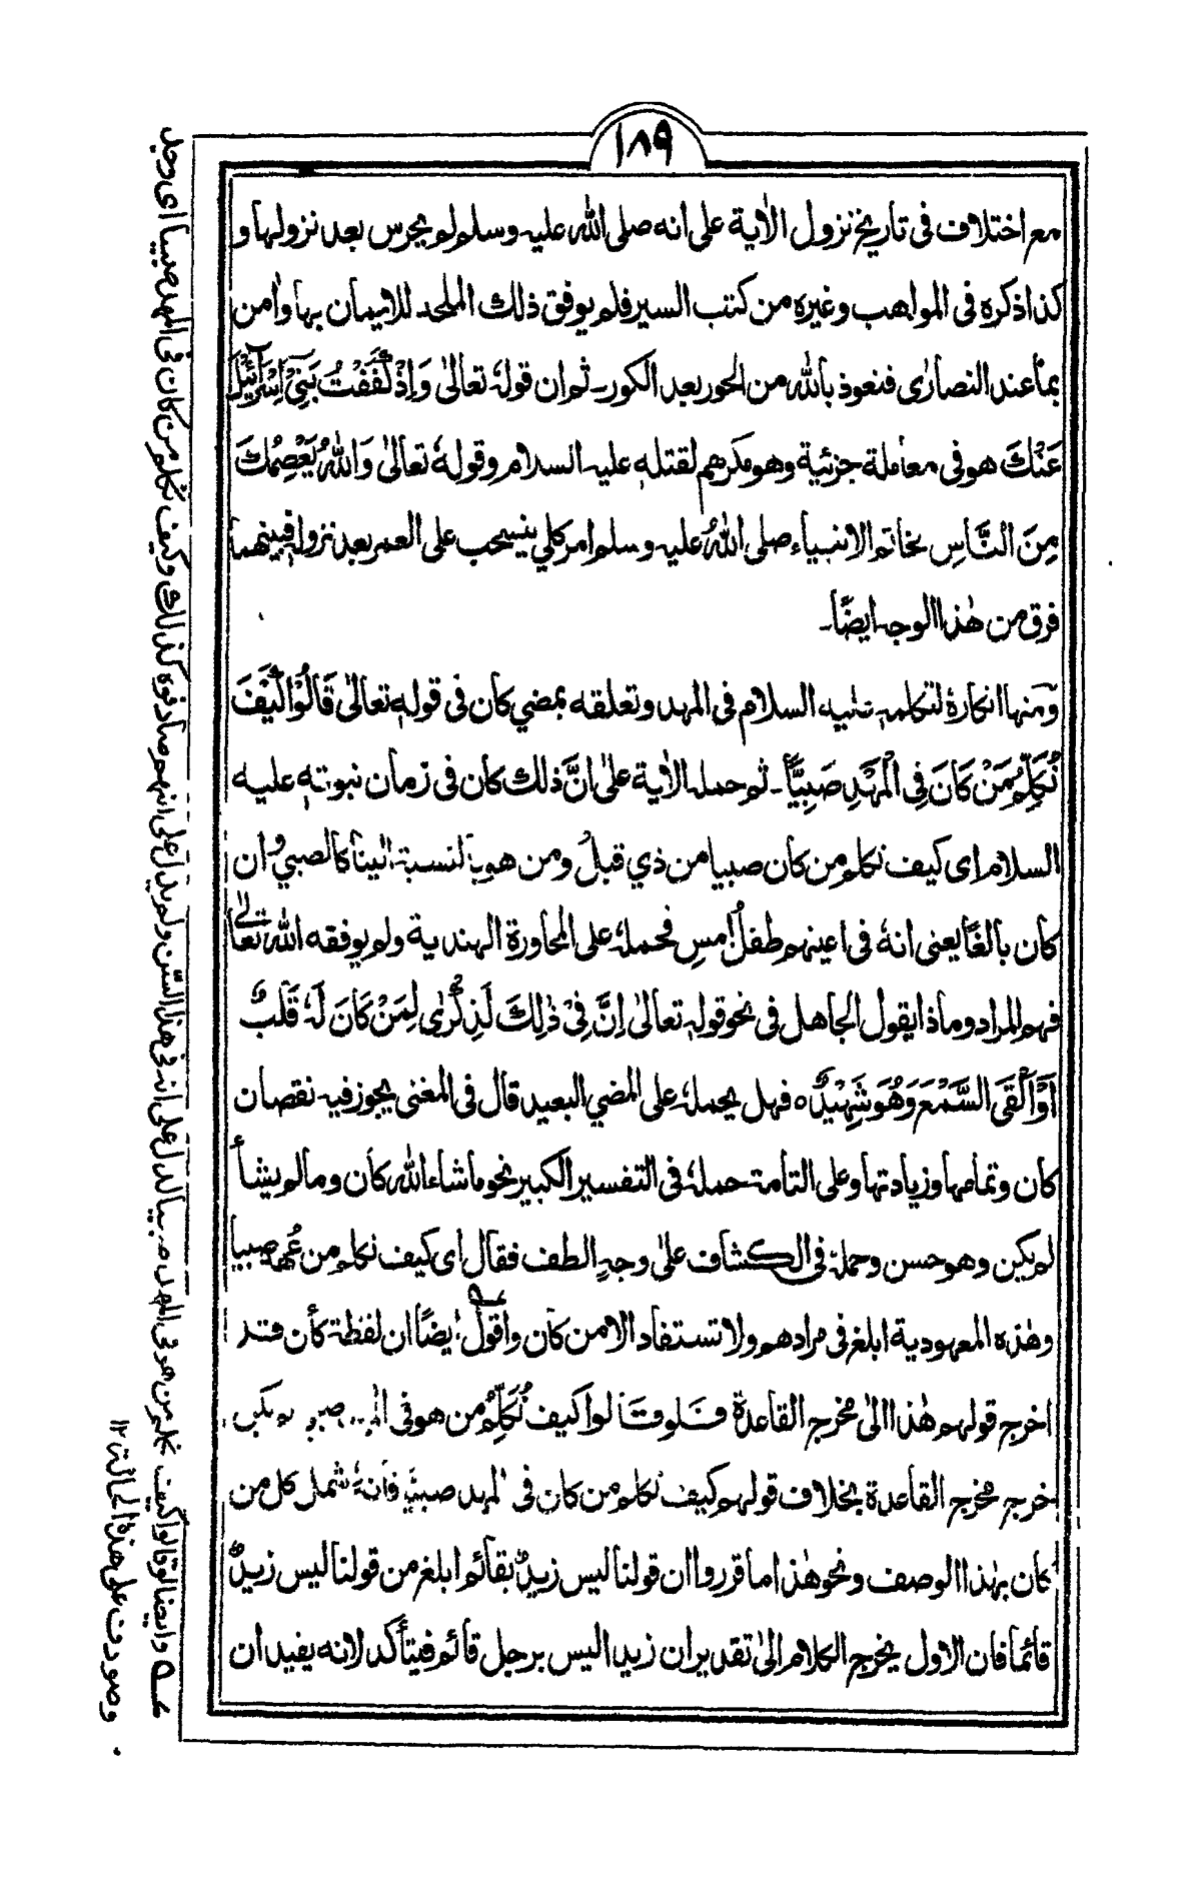 ١٨٩
مع اختلاف فى تاريخ نزول الاٰية على انه صلى الله عليه وسلم لم يحرس بعد نزولها و
كذا ذكره فى المواهب وغيره من كتب السير فلم يوفق ذلك الملحد للايمان بها واٰمن
بما عند النصارٰى فنعوذ بالله من الحور بعد الكور۔ ثم ان قولهٗ تعالىٰ وَاِذْ كَفَفْتُ بَنِيْٓ اِسْرَآئِيْلَ
عَنْكَ هو فى معاملة جزئية وهو مكرهم لقتلهٖ عليه السلام وقولهٗ تعالىٰ وَاللّٰهُ يَعْصِمُكَ
مِنَ النَّاسِ بخاتم الانبياء صلى اللهُ عليه وسلم امر كلي ينسحب على العمر بعد نزولهٖ فبينهما
فرق من هٰذا الوجه ايضًا۔
ومنها انكارهٗ لتكلمهٖ عليه السلام فى المهد وتعلقه بمضي كان فى قولهٖ تعالىٰ قَالُوْا كَيْفَ
نُكَلِّمُ مَنْ كَانَ فِى الْمَهْدِ صَبِيًّا۔ ثم حمله الاٰية علىٰ انَّ ذلك كان فى زمان نبوتهٖ عليه
السلام اى كيف نكلم من كان صبيا من ذي قبلُ ومن هو بالنسبة الينا كالصبي وان
كان بالغًا يعنى انهٗ فى اعينهم طفلُ امسِ فحملهٗ على المحاورة الهندية ولم يوفقه الله تعالىٰ
فهم المراد وماذا يقول الجاهل فى نحو قولهٖ تعالىٰ اِنَّ فِىْ ذٰلِكَ لَذِكْرٰى لِمَنْ كَانَ لَهٗ قَلْبٌ
اَوْ اَلْقَى السَّمْعَ وَهُوَ شَهِيْدٌ٥ فهل يحملهٗ على المضي البعيد قال فى المغنى يجوز فيه نقصان
كان وتمامها وزيادتها وعلى التامة حملهٗ فى التفسير الكبير نحو ماشاء الله كان وما لم يشأ
لم يكن وهو حسن وحملهٗ فى الكشاف علىٰ وجهٍ الطف فقال اى كيف نكلم من عُهد صبيا
وهٰذه المعهودية ابلغ فى مرادهم ولا تستفاد الا من كان واقول ايضًا ان لفظة كان قد
اخرج قولهم هٰذا الىٰ مخرج القاعدة فلو قالوا كيف نُكَلِّمُ من هو فى المهد لم يكن
خرج مخرج القاعدة بخلاف قولهم كيف نكلم من كان فى المهد صبيا فانهٗ شمل كل من
كان بهٰذا الوصف ونحو هٰذا ما قرروا ان قولنا ليس زيدٌ بقائم ابلغ من قولنا ليس زيدٌ
قائما فان الاول يخرج الكلام الىٰ تقدير ان زيدا ليس برجل قائم فيتأكد لانه يفيد ان
عــه وايضا لو قالوا كيف نكلم من هو فى المهد صبيا لدل على انه فى هٰذا السّن ولم يدل على انهم صادفوه كذلك وكيف نكلم من كان فى المهد صبيا اى وجد
وصودف على هٰذه الحالة ١٢